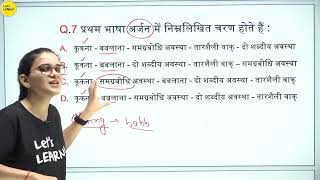 Q.7 प्रथम भाषा अर्जन में निम्नलिखित चरण होते हैं :
A. कूकना - बबलाना - समग्रबोधि अवस्था - तारशैली वाक् - दो शब्दीय अवस्था
B. कूकना - बबलाना - दो शब्दीय अवस्था - तारशैली वाक् - समग्रबोधि अवस्था
C. कूकना - समग्रबोधि अवस्था - बबलाना - दो शब्दीय अवस्था - तारशैली वाक्
D. कूकना - बबलाना - समग्रबोधि अवस्था - दो शब्दीय अवस्था - तारशैली वाक्
→ babb
Let's
LEARN